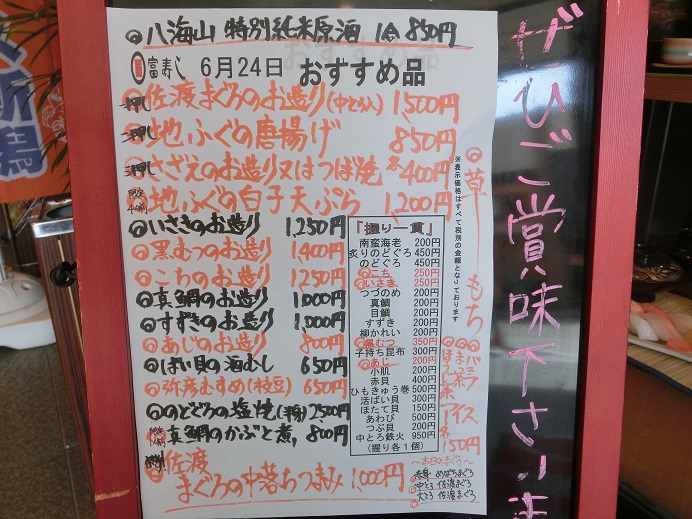 八海山 特別純米原酒 1合 850円
富寿し 6月24日 おすすめ品
押し 佐渡まぐろのお造り(中とろ入) 1,500円
押し 地ふぐの唐揚げ 850円
押し さざえのお造り又はつぼ焼 各400円
限定4個 地ふぐの白子天ぷら 1,200円
いさきのお造り 1,250円
黒むつのお造り 1,400円
こちのお造り 1,250円
真鯛のお造り 1,000円
すずきのお造り 1,000円
あじのお造り 800円
ばい貝の酒むし 650円
弥彦むすめ(枝豆) 650円
のどぐろの塩焼(半身) 2,500円
真鯛のかぶと煮 800円
佐渡
まぐろの中落ちつまみ 1,000円
「握り一貫」
南蛮海老 200円
炙りのどぐろ 450円
のどぐろ 450円
こち 250円
いさき 250円
つづのめ 200円
真鯛 200円
目鯛 200円
すずき 200円
柳かれい 200円
黒むつ 350円
子持ち昆布 300円
あじ 200円
小肌 200円
赤貝 400円
ひもきゅう巻 500円
活ばい貝 300円
ほたて貝 150円
あわび 500円
つぶ貝 200円
中とろ鉄火 950円
(握り各1個)
※表示価格はすべて税別の金額となっております
草もち
バニラ
抹茶
アイス
各150円
～本日のまぐろ～
赤身 めばちまぐろ
中とろ 佐渡まぐろ
大とろ 佐渡まぐろ
ぜひご賞味下さいま